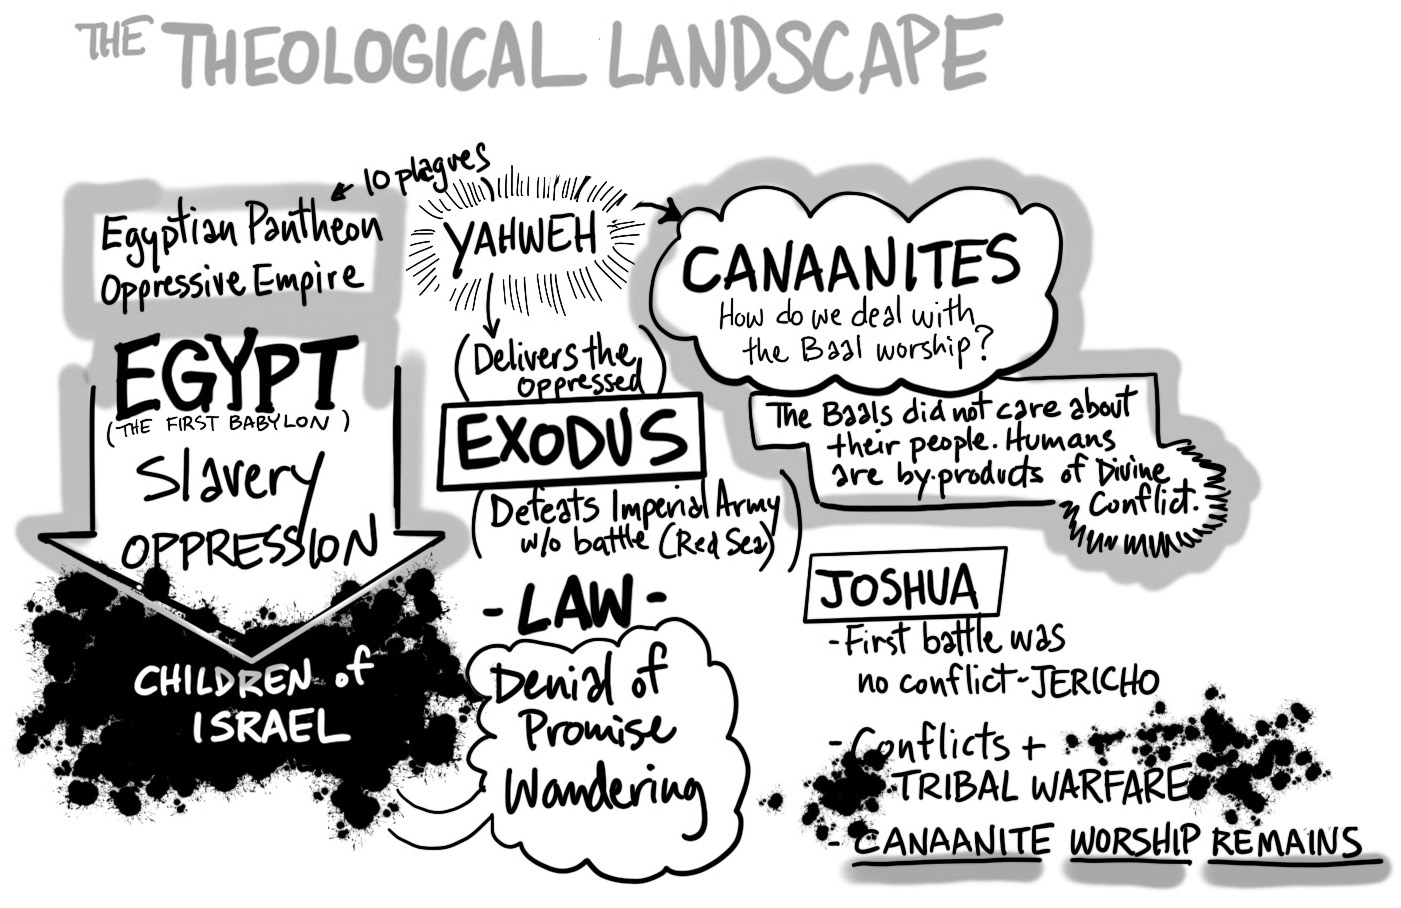 THE THEOLOGICAL LANDSCAPE
10 plagues
Egyptian Pantheon
Oppressive Empire
EGYPT
(THE FIRST BABYLON)
Slavery
OPPRESSION
CHILDREN of
ISRAEL
YAHWEH
(Delivers the
oppressed)
EXODUS
(Defeats Imperial Army
w/o battle (Red Sea))
-LAW-
Denial of
Promise
Wandering
CANAANITES
How do we deal with
the Baal worship?
The Baals did not care about
their people. Humans
are by-products of Divine
Conflict.
JOSHUA
-First battle was
no conflict-JERICHO
-Conflicts +
TRIBAL WARFARE
- CANAANITE WORSHIP REMAINS